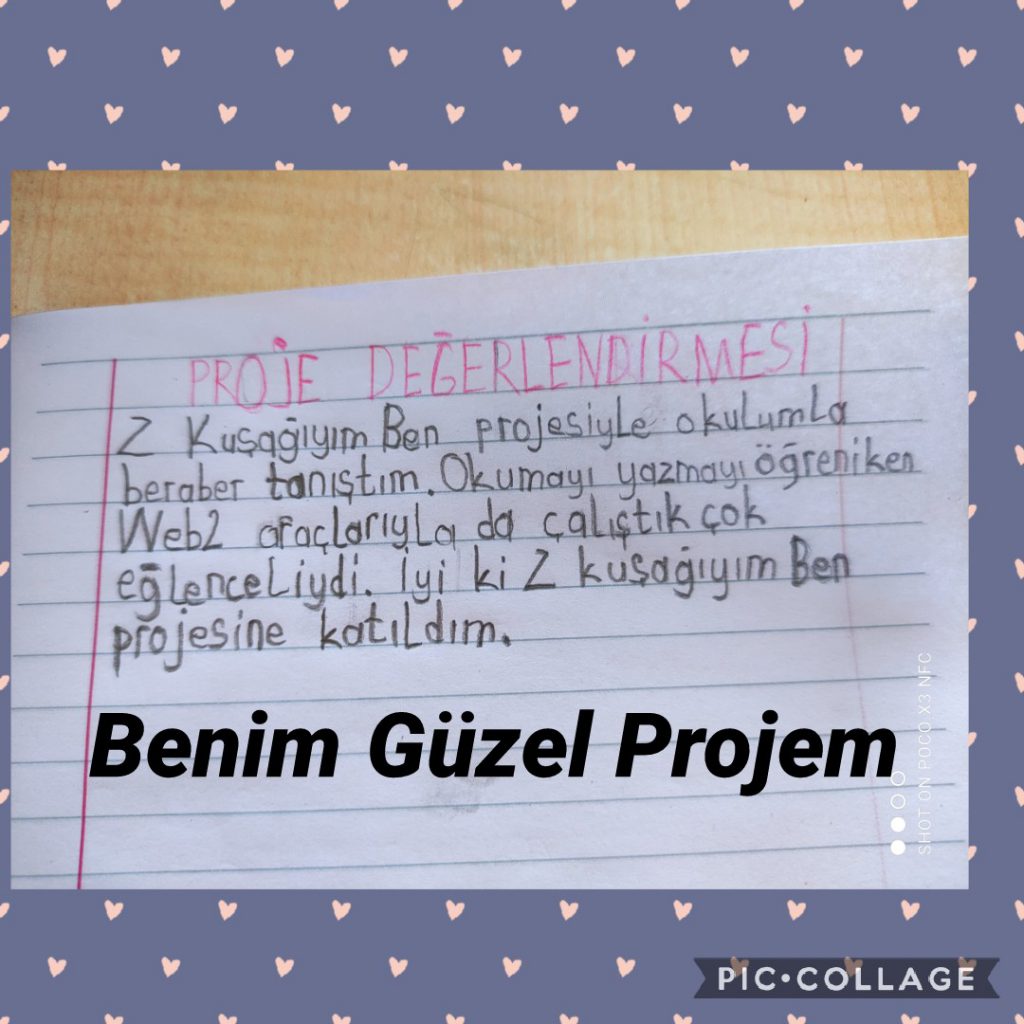 PROJE DEĞERLENDİRMESİ
Z Kuşağıyım Ben projesiyle okulumla
beraber tanıştım. Okumayı yazmayı öğreniken
Web2 araçlarıyla da çalıştık çok
eğlenceliydi. İyi ki Z kuşağıyım Ben
projesine katıldım.
Benim Güzel Projem
SHOT ON POCO X3 NFC
PIC•COLLAGE